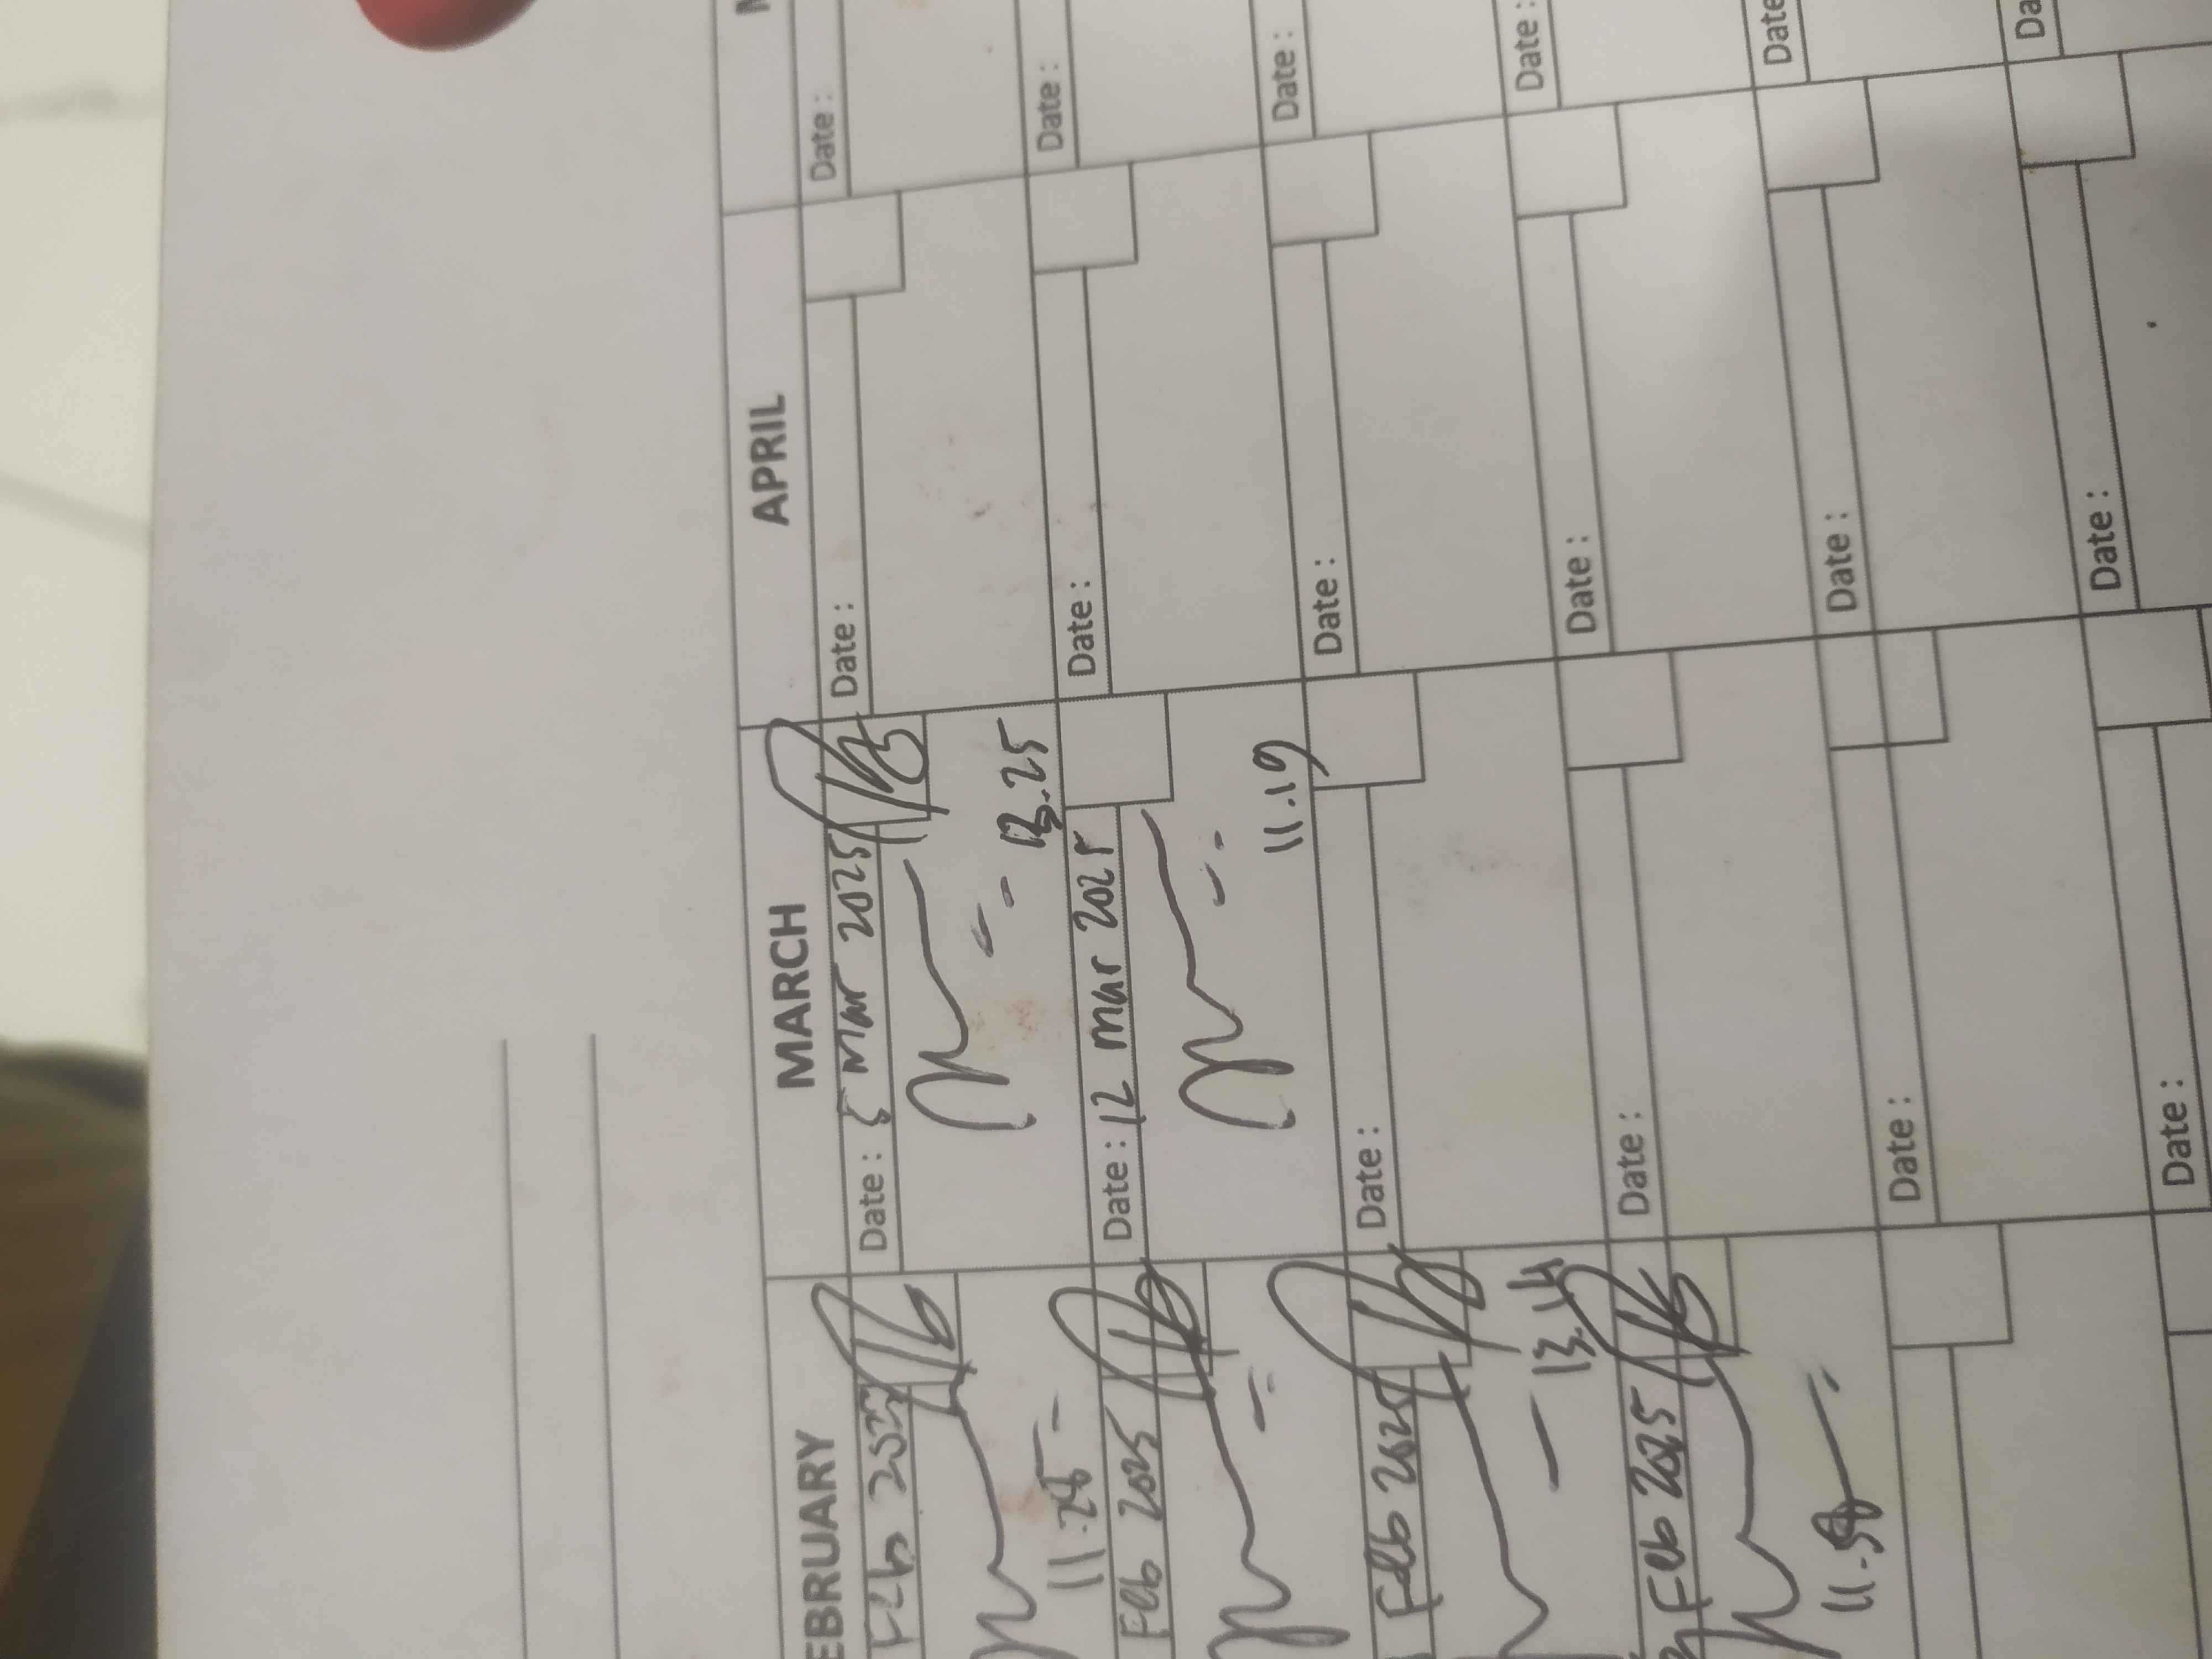 FEBRUARY MARCH APRIL
Feb Date: 5 Mar 2025 Date: Date:
11.28 13.25
Feb 2025 Date: 12 Mar 2025 Date: Date:
11.19
Feb 2025 Date: Date: Date:
13.14
Feb 2025 Date: Date: Date:
11.
Date: Date: Date
Date: Date: Da